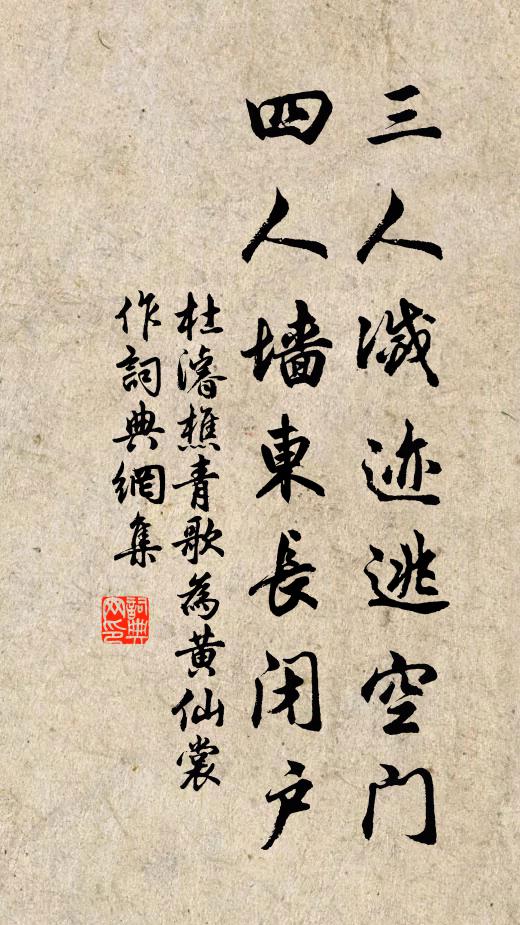 三人滅迹逃空门
四人墙東長闭户
杜濬樵青歌為黄仙裳
作詞典網集
詞典
网印